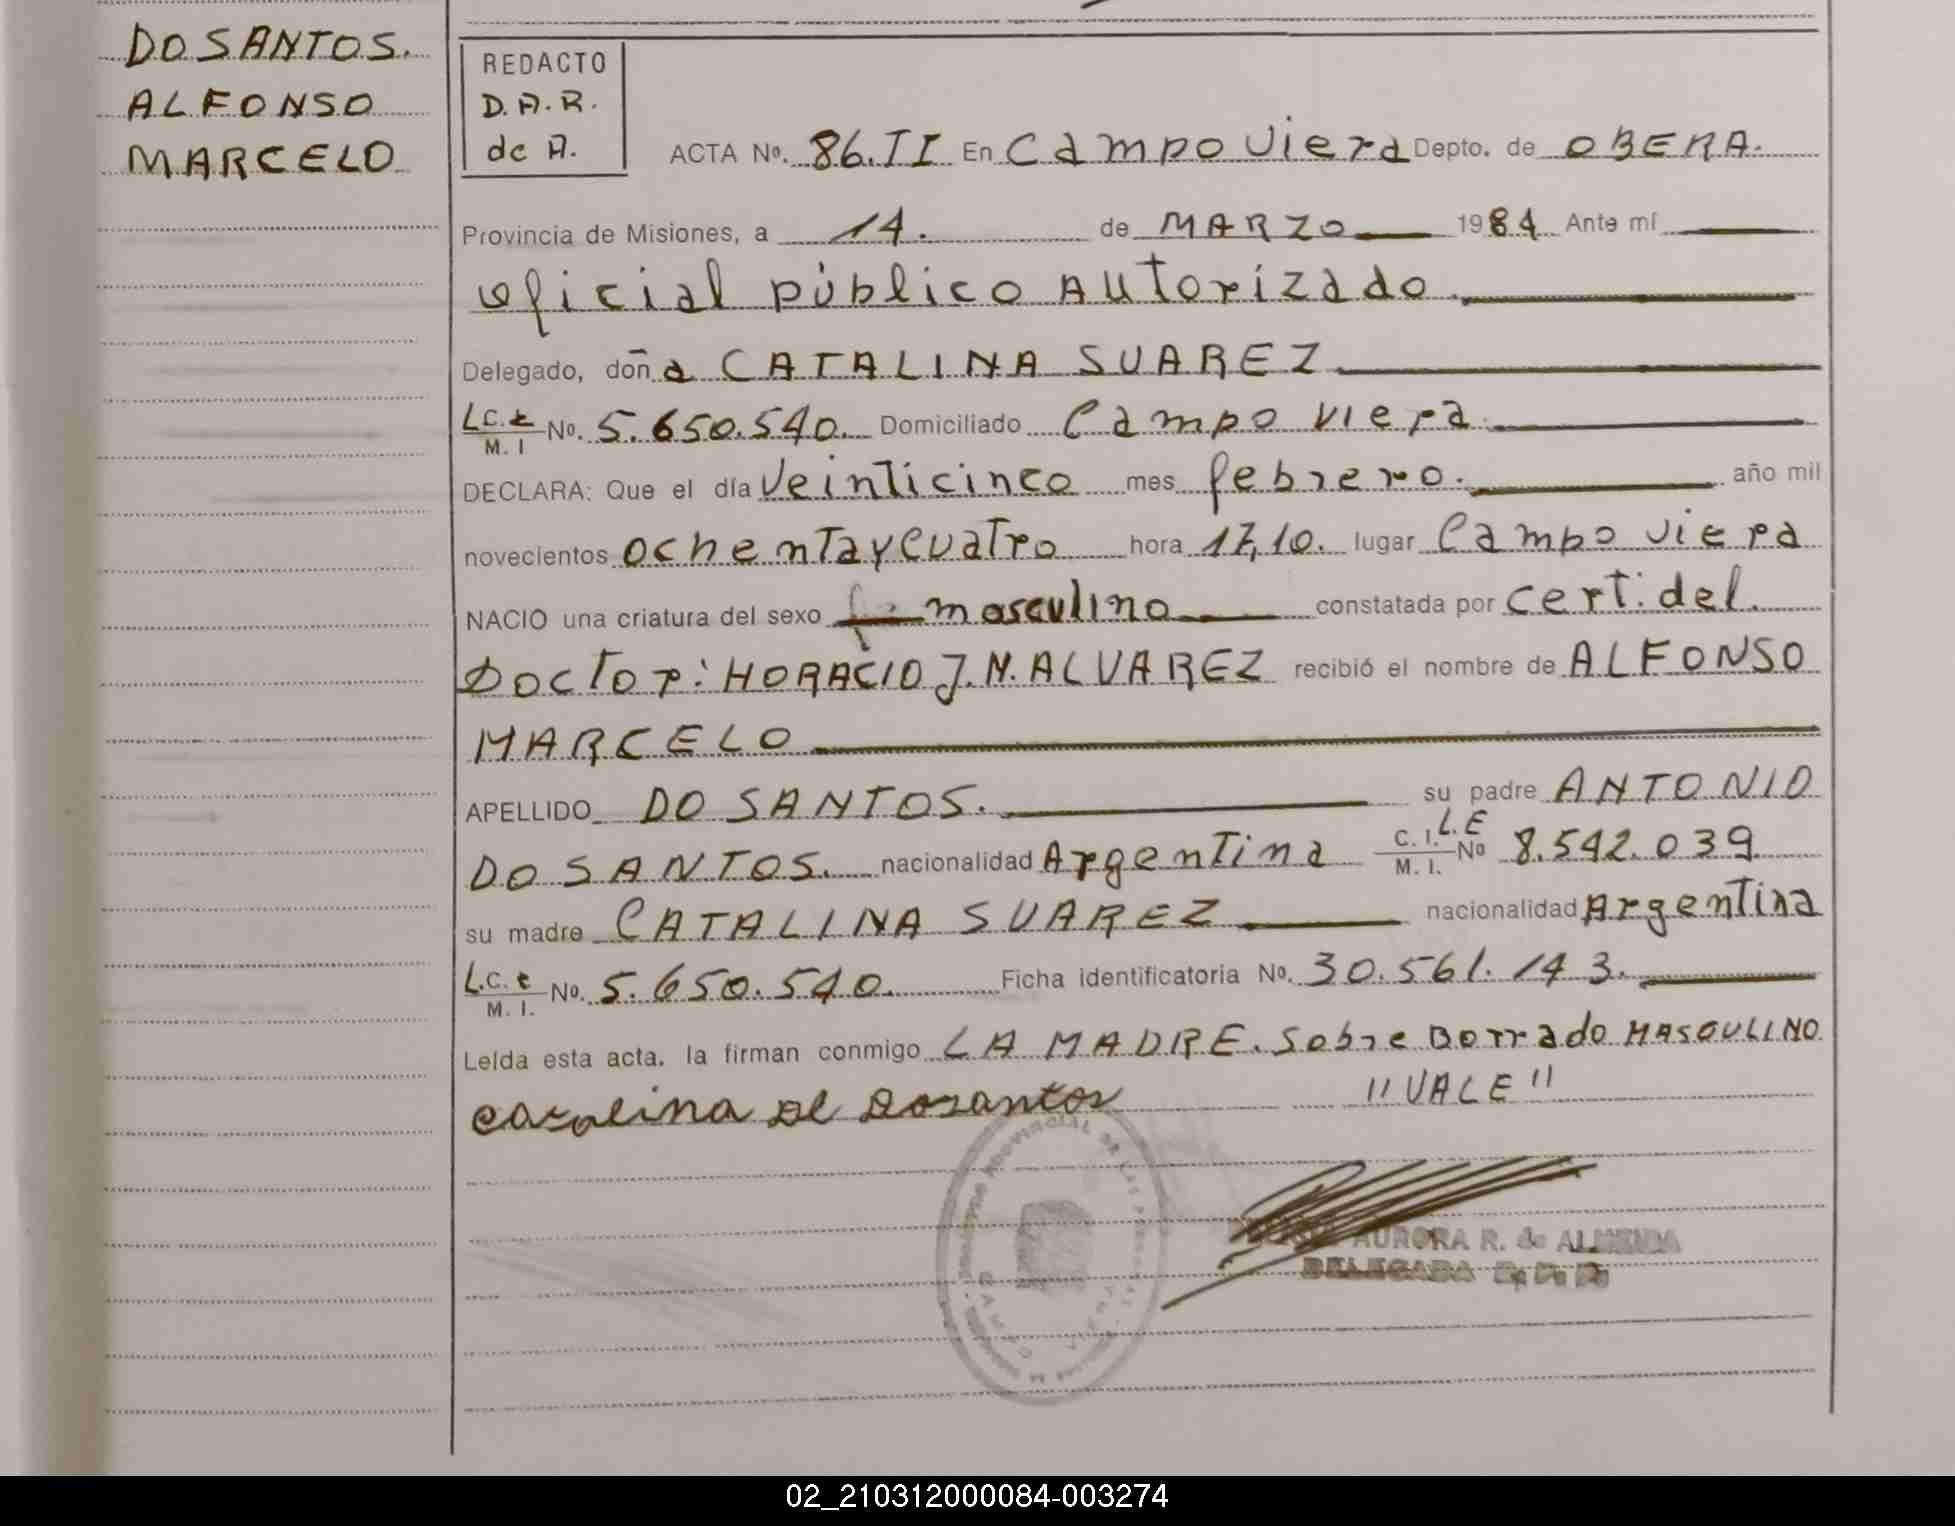 DO SANTOS.
ALFONSO
MARCELO
REDACTO
D.A.R.
de A.
ACTA No. 86.II En Campo Viera Depto. de OBERA.
Provincia de Misiones, a 14. de MARZO 1984 Ante mí
oficial público Autorizado.
Delegado, doña CATALINA SUAREZ
L.C. No. 5.650.540. Domiciliado Campo Viera.
M. I
DECLARA: Que el día Veinticinco mes febrero. año mil
novecientos ochenta y cuatro hora 17,10. lugar Campo Viera
NACIO una criatura del sexo masculino constatada por cert. del.
Doctor: HORACIO J. N. ALVAREZ recibió el nombre de ALFONSO
MARCELO
APELLIDO DO SANTOS. su padre ANTONIO
DO SANTOS. nacionalidad Argentina C. I. L.E No 8.542.039
M. I.
su madre CATALINA SUAREZ nacionalidad Argentina
L.C. No. 5.650.540. Ficha identificatoria No. 30.561.143.
M. I.
Leída esta acta, la firman conmigo LA MADRE. Sobre Borrado MASCULINO
"VALE"
catalina de dosantos
PROVINCIAL DE LAS PERSONAS
AURORA R. de ALMEIDA
DELEGADA
02_210312000084-003274